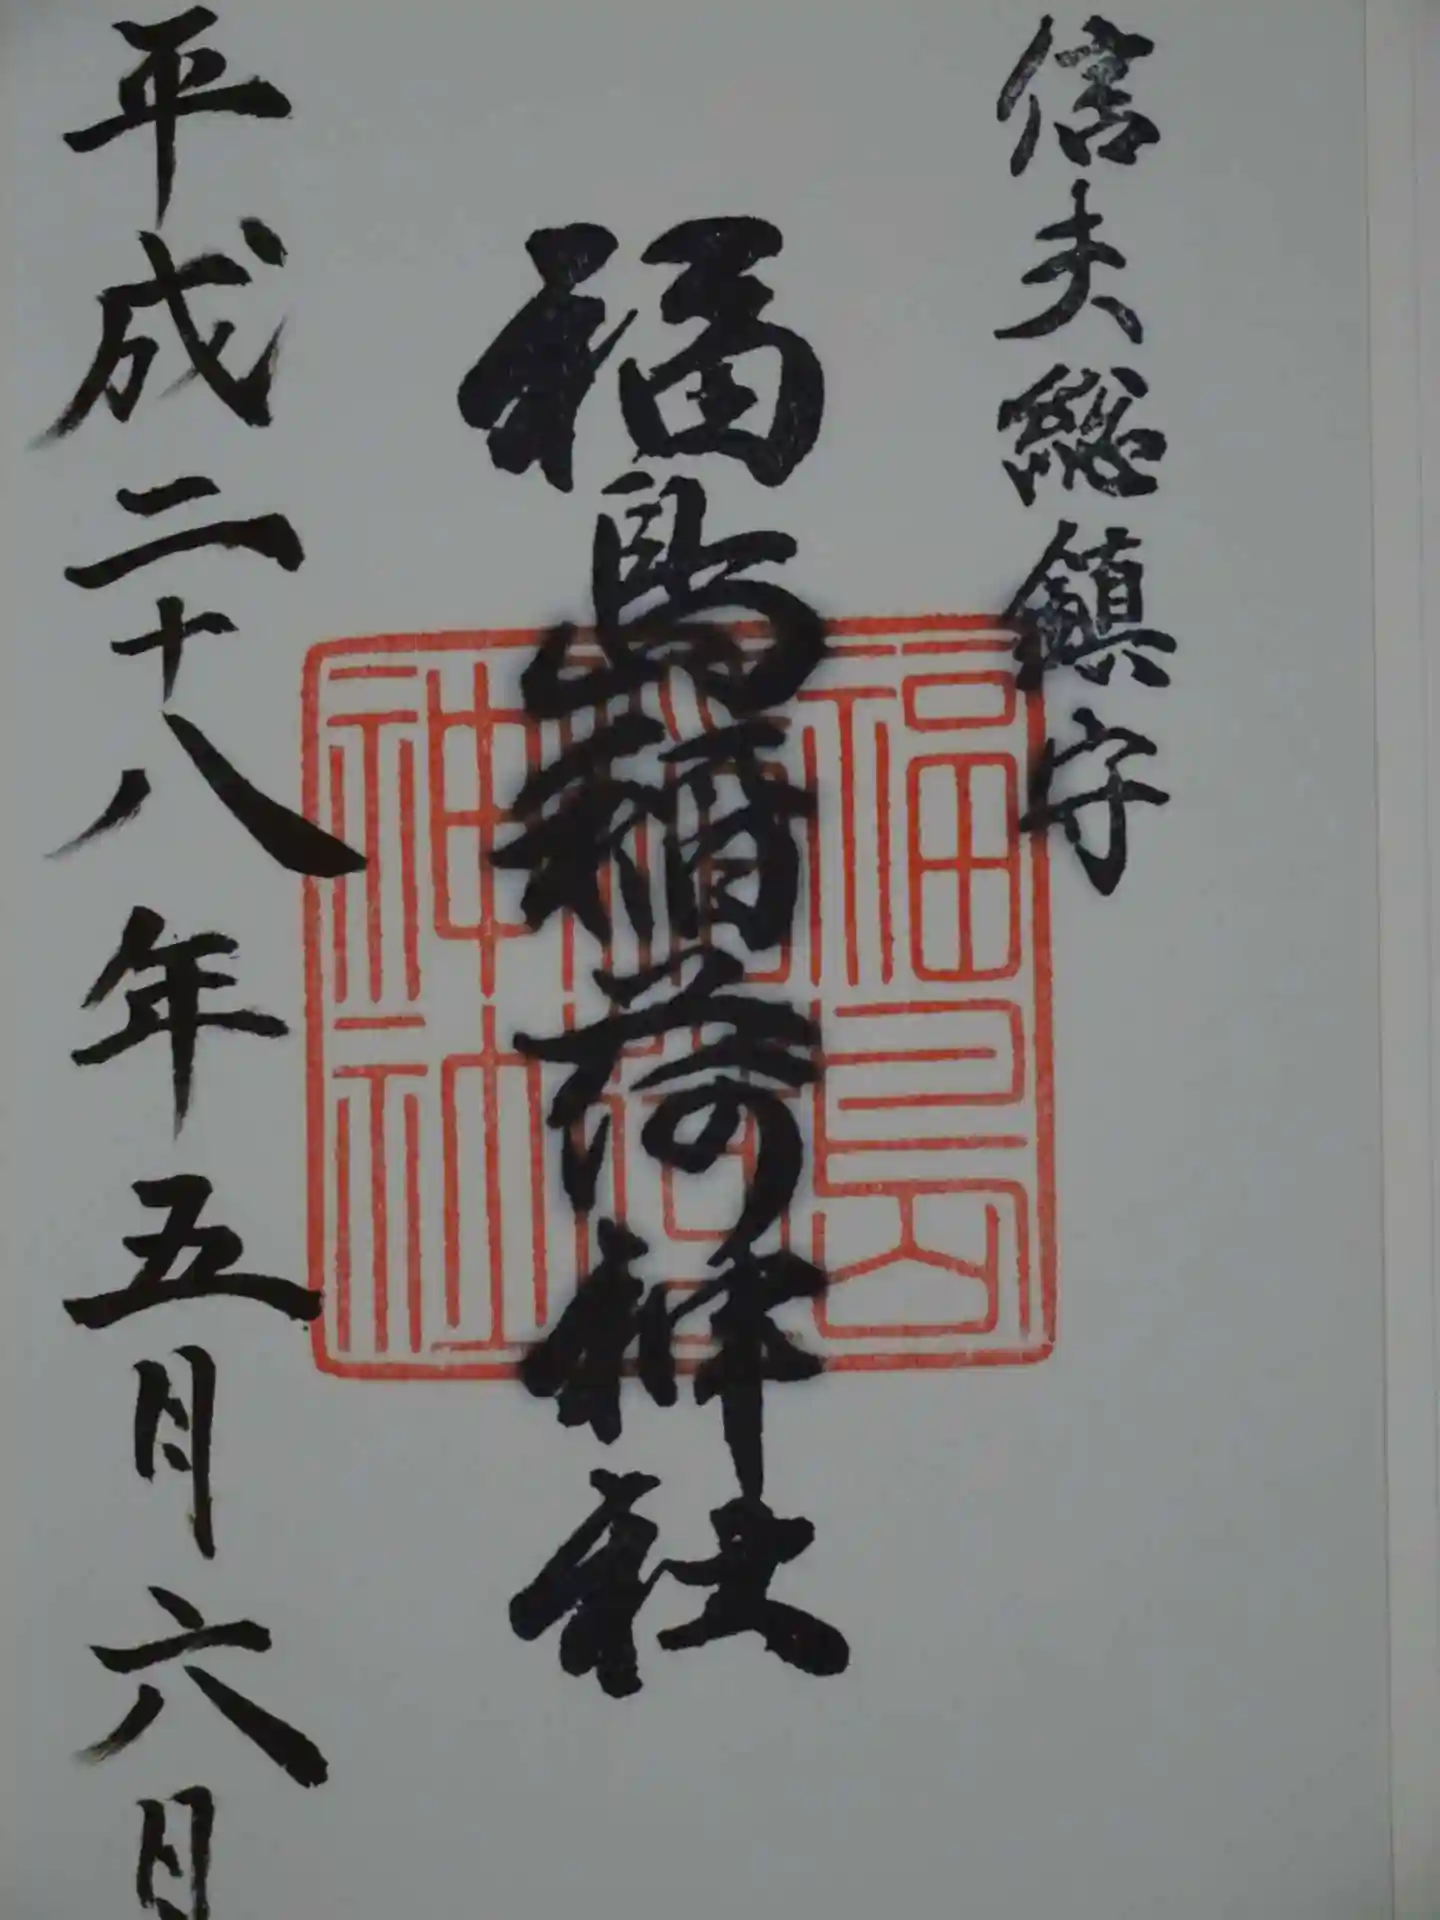 信夫総鎮守
福島稲荷神社
福島稲荷神社
平成二十八年五月六日